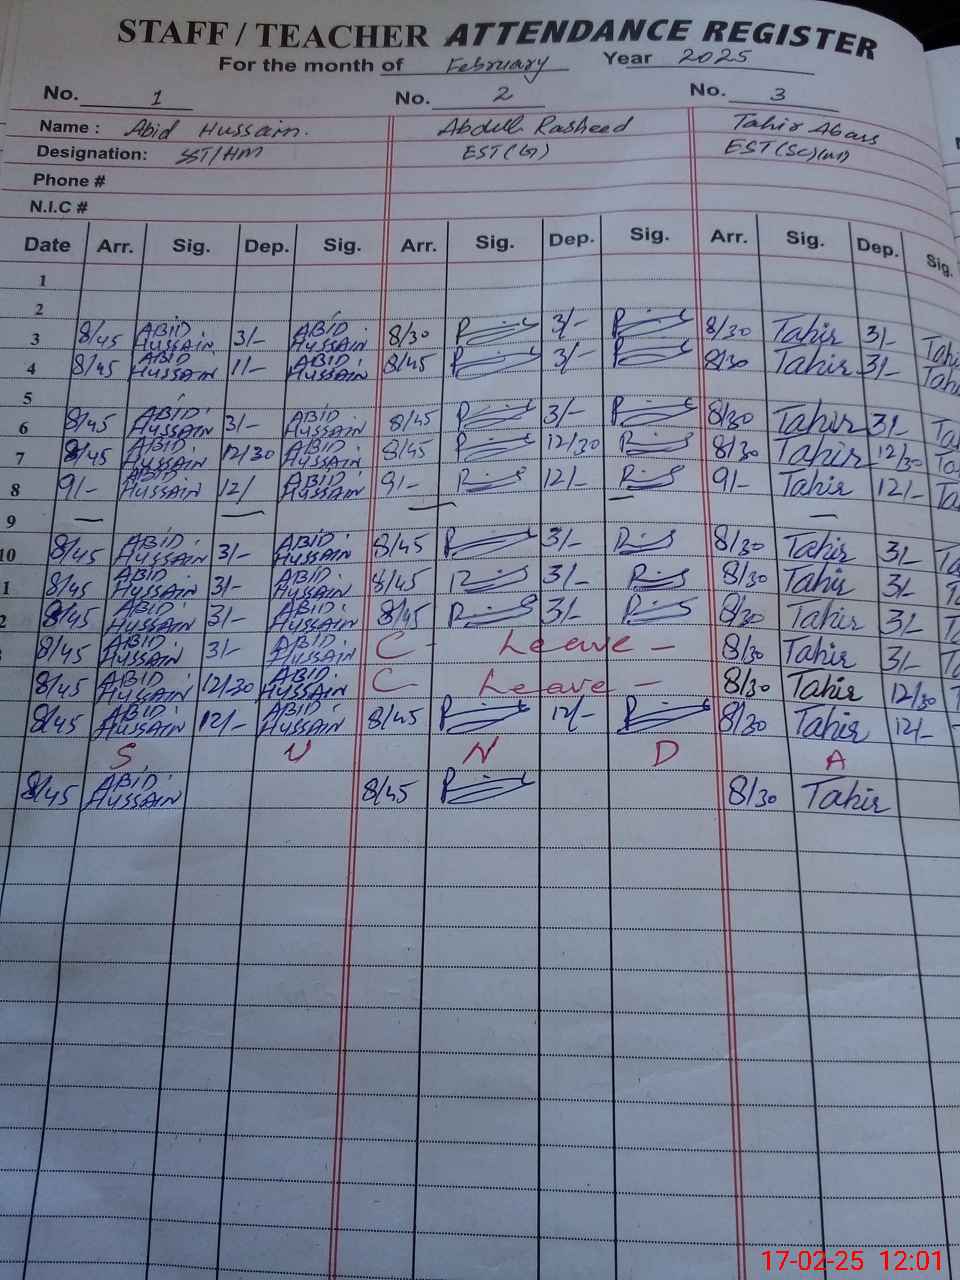 STAFF / TEACHER ATTENDANCE REGISTER
For the month of February Year 2025
No. 1 No. 2 No. 3
Name : Abid Hussain. Abdul Rasheed Tahir Abass
Designation: SST/HM EST(G) EST(Sc)(M)
Phone #
N.I.C #
Date Arr. Sig. Dep. Sig. Arr. Sig. Dep. Sig. Arr. Sig. Dep. Sig.
1
2
3 8/45 ABID HUSSAIN 3/- ABID HUSSAIN 8/30 3/- 8/30 Tahir 3/- Tahi
4 8/45 ABID HUSSAIN 11- ABID HUSSAIN 8/45 3/- 8/30 Tahir 3/- Tahi
5
6 8/45 ABID HUSSAIN 3/- ABID HUSSAIN 8/45 3/- 8/30 Tahir 3/- Ta
7 8/45 ABID HUSSAIN 12/30 ABID HUSSAIN 8/45 12/30 8/30 Tahir 12/30 Ta
8 9/- ABID HUSSAIN 12/ ABID HUSSAIN 9/- 12/- 9/- Tahir 12/- Ta
9 — — — — —
10 8/45 ABID HUSSAIN 3/- ABID HUSSAIN 8/45 3/- 8/30 Tahir 3/- Ta
1 8/45 ABID HUSSAIN 3/- ABID HUSSAIN 8/45 3/- 8/30 Tahir 3/- Ta
2 8/45 ABID HUSSAIN 3/- ABID HUSSAIN 8/45 3/- 8/30 Tahir 3/- Ta
8/45 ABID HUSSAIN 3/- ABID HUSSAIN C - Leave - 8/30 Tahir 3/- Ta
8/45 ABID HUSSAIN 12/30 ABID HUSSAIN C Leave - 8/30 Tahir 12/30
8/45 ABID HUSSAIN 12/- ABID HUSSAIN 8/45 12/- 8/30 Tahir 12/-
S U N D A
8/45 ABID HUSSAIN 8/45 8/30 Tahir
17-02-25 12:01